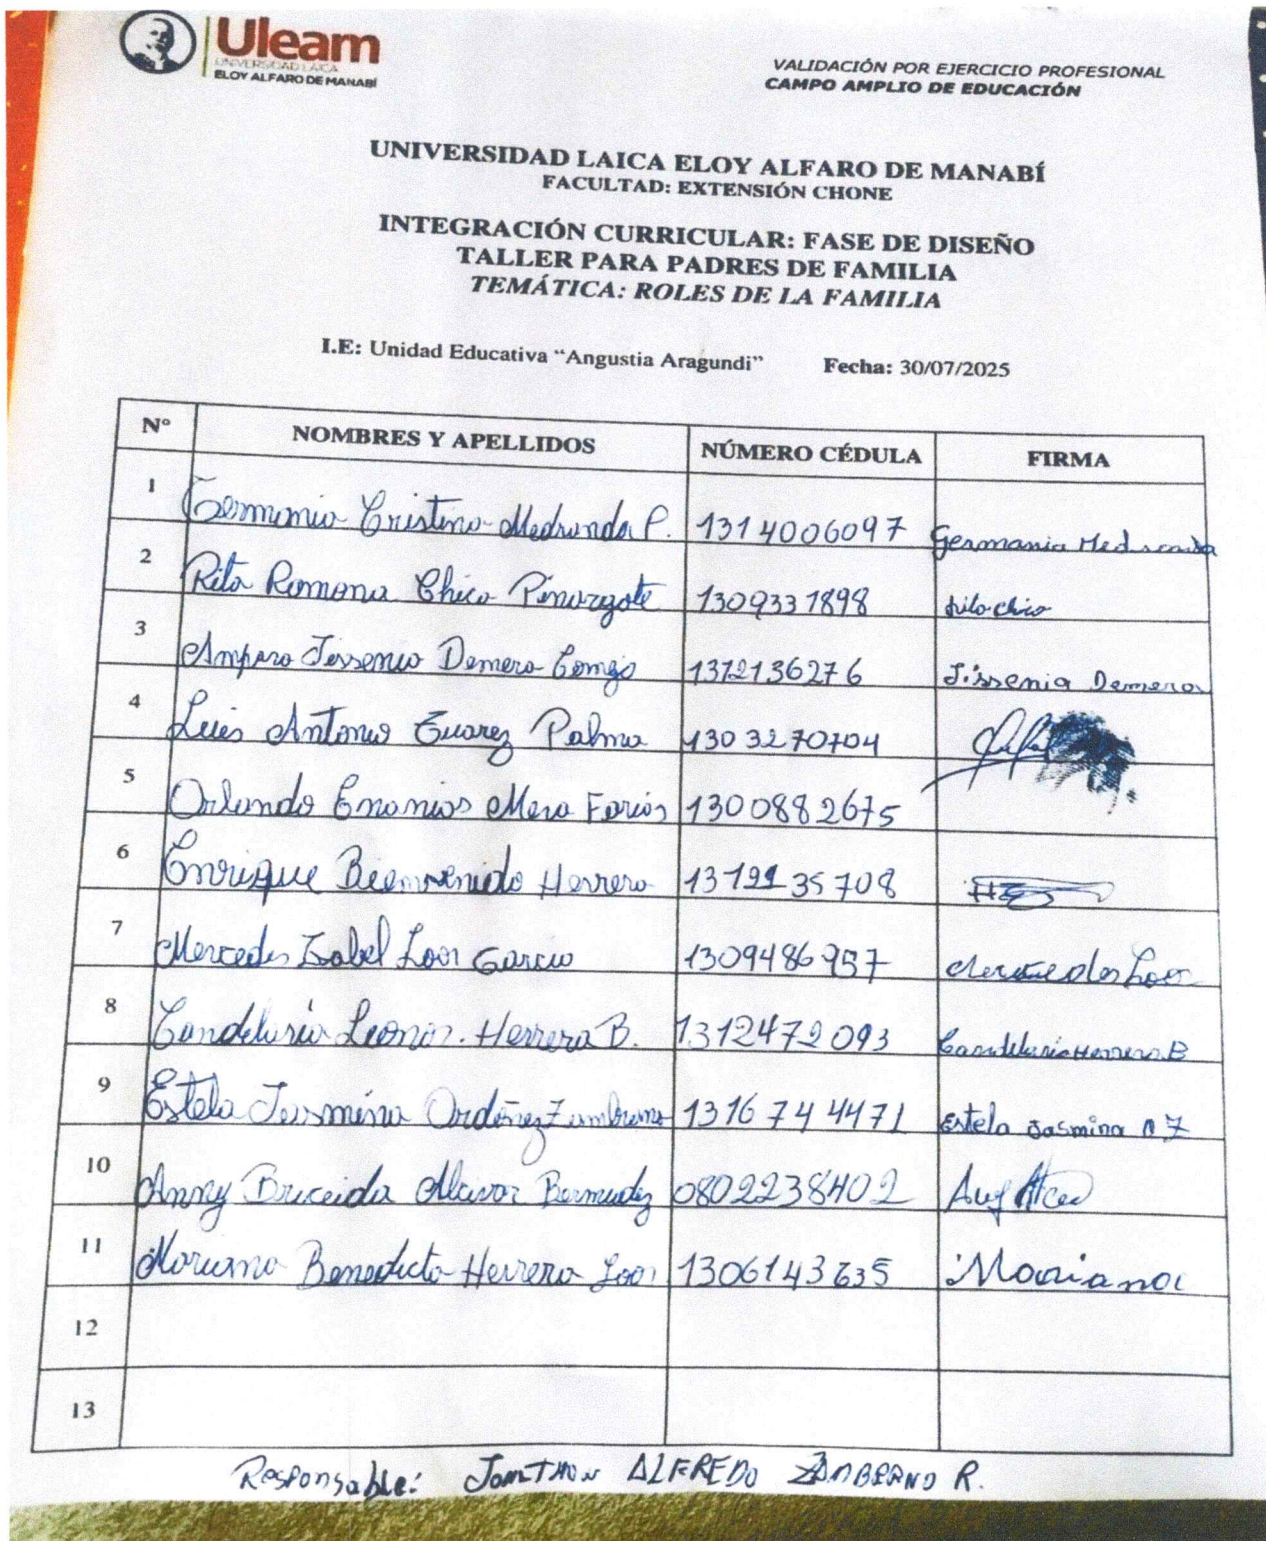 Uleam
UNIVERSIDAD LAICA
ELOY ALFARO DE MANABÍ
VALIDACIÓN POR EJERCICIO PROFESIONAL
CAMPO AMPLIO DE EDUCACIÓN
UNIVERSIDAD LAICA ELOY ALFARO DE MANABÍ
FACULTAD: EXTENSIÓN CHONE
INTEGRACIÓN CURRICULAR: FASE DE DISEÑO
TALLER PARA PADRES DE FAMILIA
TEMÁTICA: ROLES DE LA FAMILIA
I.E: Unidad Educativa “Angustia Aragundi” Fecha: 30/07/2025
Nº NOMBRES Y APELLIDOS NÚMERO CÉDULA FIRMA
1 Germania Cristina Medranda P. 1314006097 Germania Medranda
2 Rita Ramona Chica Pinargote 1309331898 Rita chica
3 Amparo Jessenia Demera Comejo 1312136276 Jissenia Demera
4 Luis Antonio Suarez Palma 1303270704
5 Orlando Enanias Mera Farias 1300882675
6 Enrique Bienvenido Herrera 35708
7 Mercedes Isabel Loor Garcia 1309486957 Loor
8 Candelaria Leonor. Herrera B. 1312472093 Candelaria Herrera B
9 Estela Jasmina Ordoñez Zambrano 1316744471 Estela Jasmina O Z
10 Anny Briceida Alcivar Bermudez 0802238402
11 Mariana Benedicta Herrera Loor 1306143635 Mariana
12
13
Responsable: ALFREDO R.